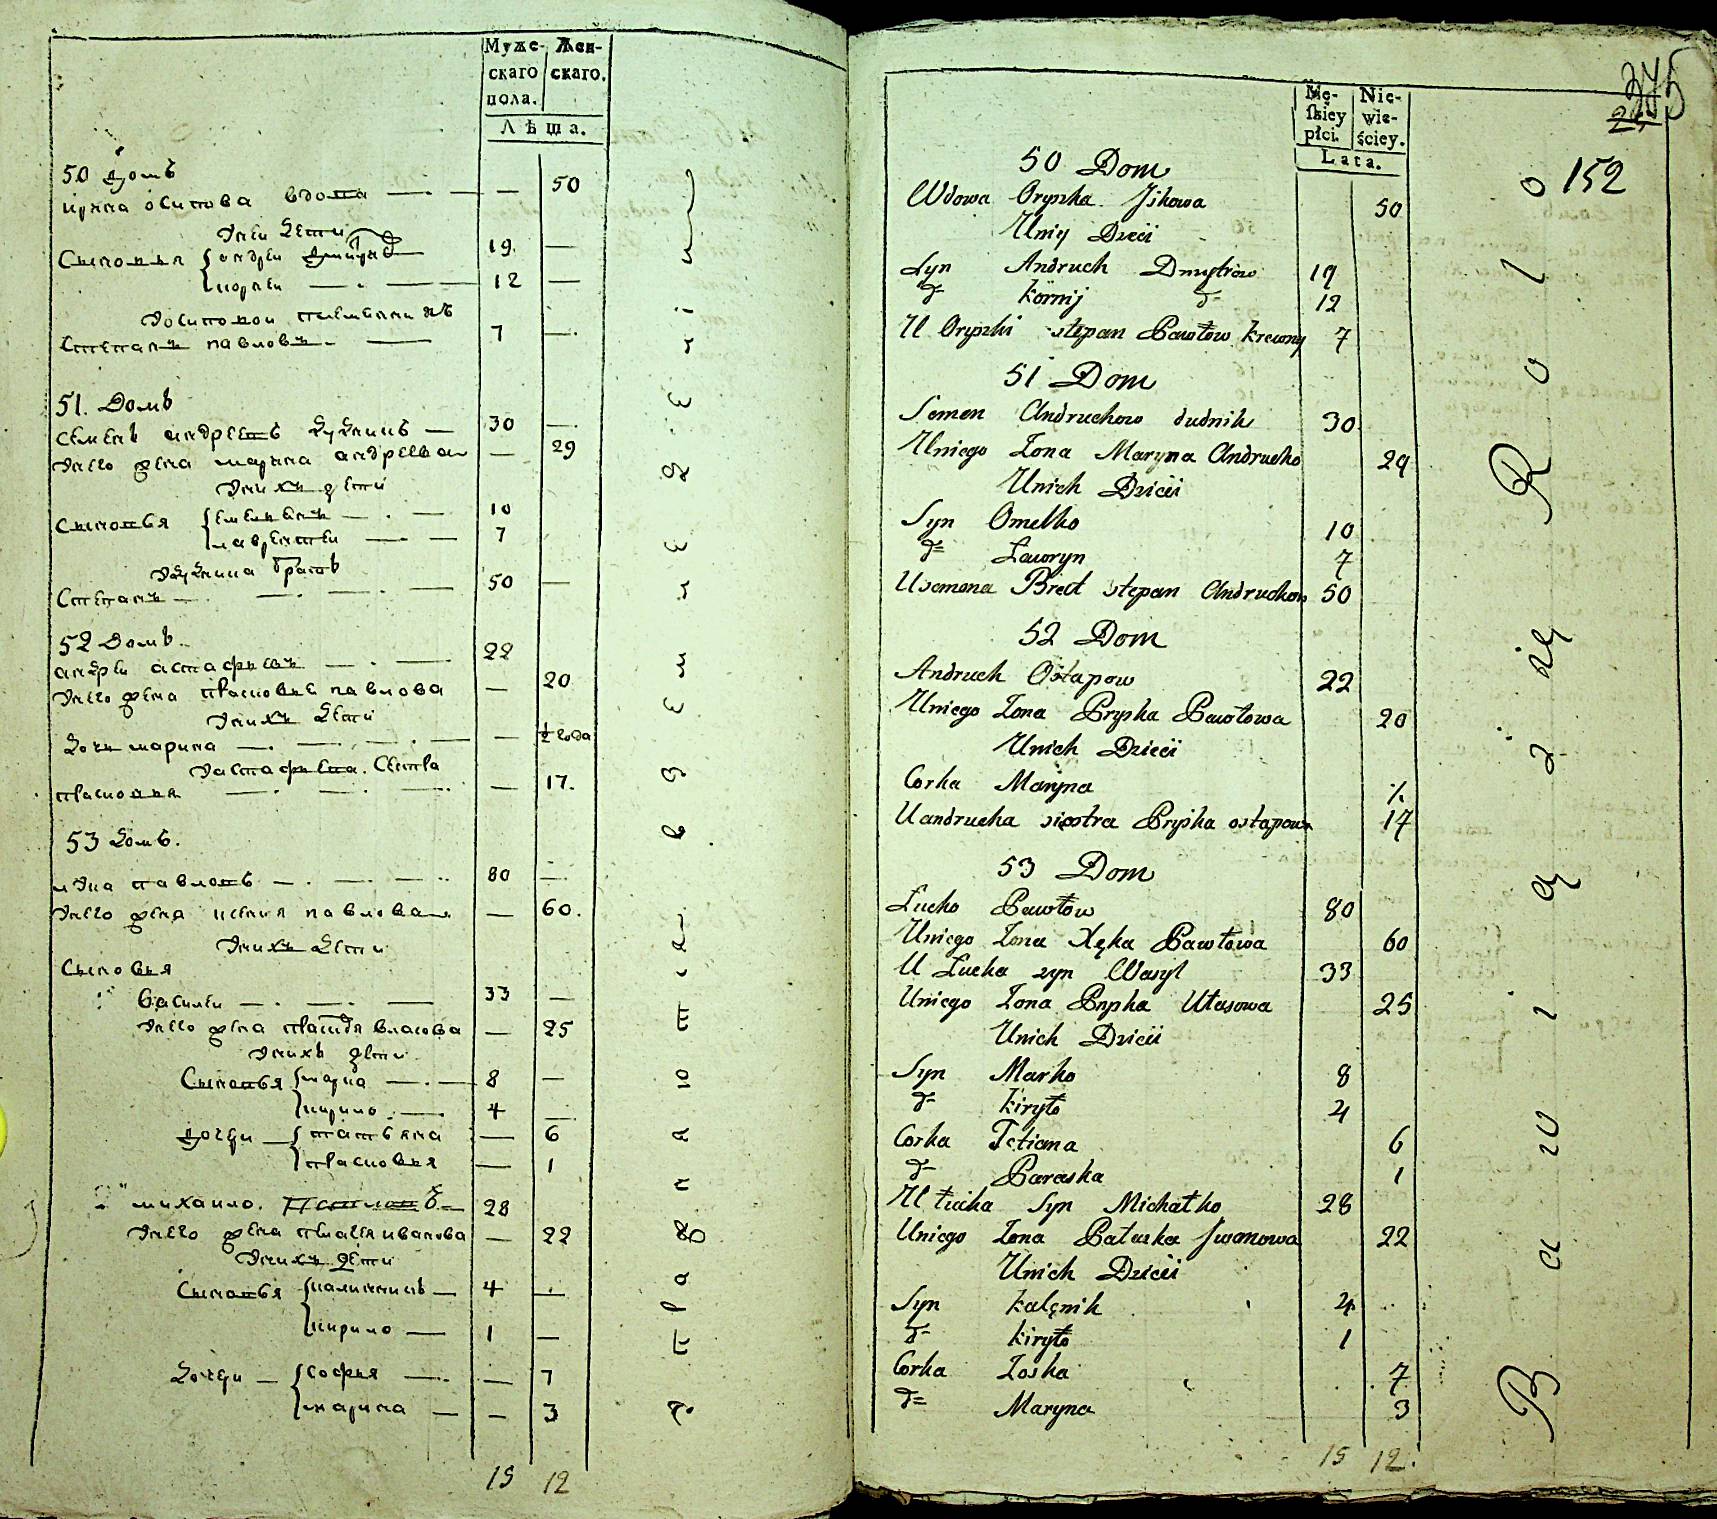 Муже-
скаго
пола.
Жен-
скаго.
Лѣта.
50 домъ
ирина осипова вдова — 50
Унеи дети
Сыновья андреи дмитриев 19. —
корнеи — 12 —
Уосиповои племянникъ
Степанъ павловъ — 7 —
51. Домъ
семенъ андреевъ дудникъ — 30 —
Унего жена марина андреева — 29
Унихъ дети
Сыновья емельянъ — 10
лаврентеи — 7
Удудника братъ
Степанъ — 50 —
52 Домъ.
андреи астафьевъ — 22
Унего жена прасковья павлова — 20
Унихъ дети
дочь марина — ½ года
Уастафьева. Сестра
прасковья — 17.
53 домъ.
лука павловъ — 80 —
Унего жена ксения павлова — 60.
Унихъ дети
Сыновья
василеи — 33 —
Унего жена власова — 25
Унихъ дети
Сыновья марко — 8 —
кирило — 4 —
дочери — татьяна — 6
прасковья — 1
2 михаило. 28
Унего жена иванова — 22
Унихъ дети
Сыновья калинникъ — 4 —
кирило — 1 —
дочери — софья — 7
марина — 3
15 12
375
152
Mę-
skiey
płci.
Nie-
wie-
ściey.
Lata.
50 Dom
Wdowa Oryszka Jskowa 50
Uniy Dzieci
Syn Andruch Dmytrow 19
d= kornij d= 12
U Oryszki stepan Pawłow krewny 7
51 Dom
Semen Andruchow dudnik 30
Uniego Zona Maryna Andrucho 29
Unich Dzieci
Syn Omelko 10
d= Lawryn 7
Usemena Brat stepan Andruchow 50
52 Dom
Andruch Ostapow 22
Uniego Zona Pryska Pawłowa 20
Unich Dzieci
Corka Maryna ½
Uandrucha siestra Pryska ostapowa 17
53 Dom
Lucko Pawłow 80
Uniego Zona Xęka Pawłowa 60
U Lucka syn Wasyl 33
Uniego Zona Pryska Własowa 25
Unich Dzieci
Syn Marko 8
d= kiryło 4
Corka Tetiana 6
d= Paraska 1
U łucka Syn Michałko 28
Uniego Zona Pałaszka Jwanowa 22
Unich Dzieci
Syn kalęnik 4
d= kiryło 1
Corka Zoska 7
d= Maryna 3
15 12.